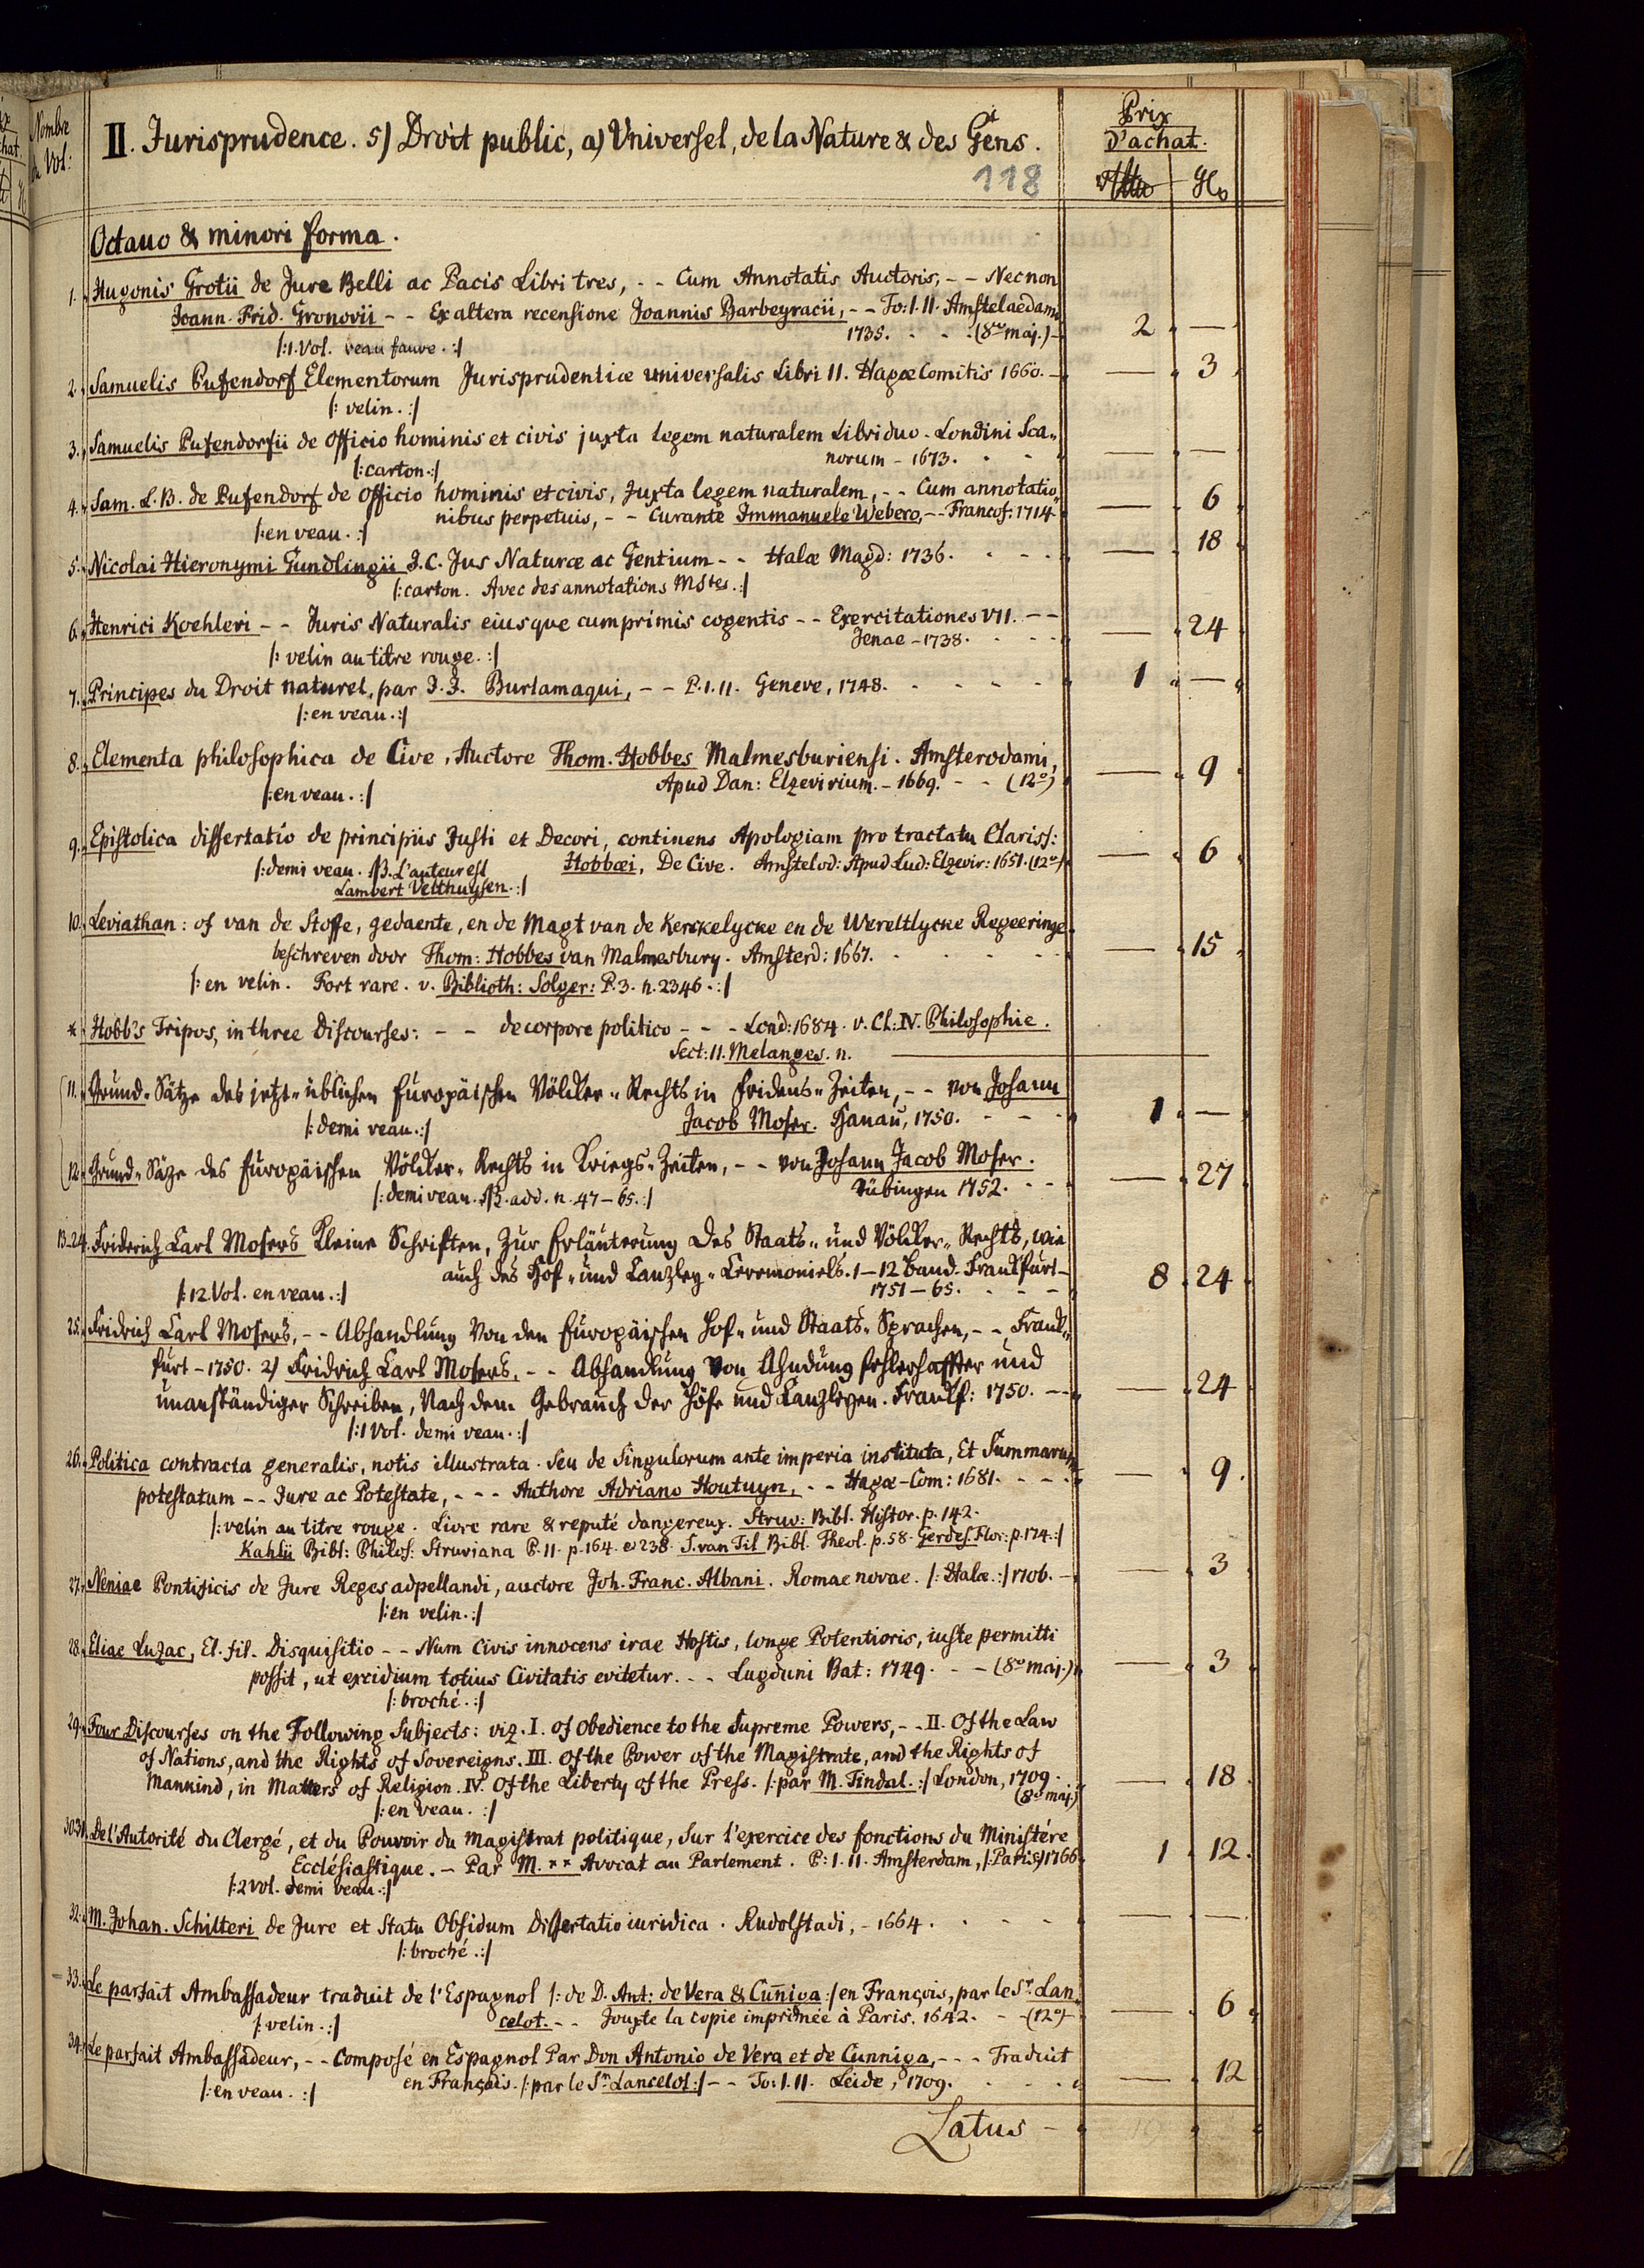 Nombre
Vol:
II. Jurisprudence. 5) Droit public, a) Universel, de la Nature & des Gens.
118
Prix
d'achat.
Octauo & minori forma.
1. Hugonis Grotii de Jure Belli ac Pacis Libri tres, - - Cum Annotatis Auctoris, - - Necnon
Joann. Frid. Gronovii - - Ex altera recensione Joannis Barbeyracii, - - To: I. II. Amstelaedami
1735. - - (8vo maj.) - 2 —
/:1. Vol. veau fauve.:/
2. Samuelis Pufendorf Elementorum Jurisprudentiæ universalis Libri II. Hagæ Comitis 1660. — 3
/: velin.:/
3. Samuelis Pufendorfii de Officio hominis et civis juxta legem naturalem Libri duo. Londini Sca„
norum - 1673. — —
/:carton.:/
4. Sam. L. B. de Pufendorf de Officio hominis et civis, Juxta legem naturalem, - - Cum annotatio„
nibus perpetuis, - - Curante Immanuele Webero, - - Francof: 1714 — 6
/:en veau.:/
5. Nicolai Hieronymi Gundlingii J.C. Jus Naturæ ac Gentium - - Halæ Magd: 1736. — 18
/:carton. Avec des annotations Mstes.:/
6. Henrici Koehleri - - Juris Naturalis eiusque cumprimis cogentis - - Exercitationes VII. - -
Jenae - 1738. — 24
/: velin au titre rouge.:/
7. Principes du Droit naturel, par J. J. Burlamaqui, - - P. I. II. Geneve, 1748. 1 —
/:en veau.:/
8. Elementa philosophica de Cive, Auctore Thom. Hobbes Malmesburiensi. Amsterodami,
Apud Dan: Elzevirium. - 1669. - - (12°) — 9
/:en veau.:/
9. Epistolica dissertatio de principiis Justi et Decori, continens Apologiam pro tractatu Clariss:
Hobbæi, De Cive. Amstelod: Apud Lud: Elzevir: 1651. (12°) — 6
/:demi veau. NB. L'auteur est
Lambert Velthuysen.:/
10. Leviathan: of van de Stoffe, gedaente, en de Magt van de Kerckelycke en de Wereltlycke Regeeringe
beschreven door Thom: Hobbes van Malmesbury. Amsterd: 1667. — 15
/:en velin. Fort rare. v. Biblioth: Solger: P. 3. n. 2346.:/
* Hobb's Tripos, in three Discourses: - - de corpore politico - - - Lond: 1684. v. Cl: IV. Philosophie.
Sect: II. Melanges. n.
11. Grund-Sätze des jetzt-üblichen Europäischen Völcker-Rechts in Fridens-Zeiten, - - von Johann
Jacob Moser. Hanau, 1750. 1 —
/:demi veau.:/
12. Grund-Säze des Europäischen Völcker-Rechts in Kriegs-Zeiten, - - von Johann Jacob Moser.
Tübingen 1752. — 27
/:demi veau. NB. add. n. 47-65.:/
13-24. Friderich Carl Mosers Kleine Schriften, Zur Erläuterung des Staats- und Völcker-Rechts, wie
auch des Hof- und Canzley-Ceremoniels. 1-12 Band. Franckfurt -
1751-65. 8 24
/:12 Vol. en veau.:/
25. Fridrich Carl Mosers, - - Abhandlung Von den Europäischen Hof- und Staats-Sprachen, - - Franck„
furt - 1750. 2) Fridrich Carl Mosers, - - Abhandlung Von Ahndung fehlerhaffter und
unanständiger Schreiben, Nach dem Gebrauch der Höfe und Canzleyen. Franckf: 1750. — 24
/:1 Vol. demi veau.:/
26. Politica contracta generalis, notis illustrata. Seu de Singulorum ante imperia instituta, Et Summarum
potestatum - - Jure ac Potestate, - - - Authore Adriano Houtuyn, - - Hagæ-Com: 1681. — 9
/:velin au titre rouge. Livre rare & reputé dangereux. Struv: Bibl. Histor. p. 142.
Kahlii Bibl: Philos: Struviana P. II. p. 164. & 238. S. van Til Bibl. Theol. p. 58. Gerdes. Flor: p. 174.:/
27. Neniae Pontificis de Jure Reges adpellandi, auctore Joh. Franc. Albani. Romae novae. /:Halæ.:/ 1706. — 3
/:en velin.:/
28. Eliae Luzac, El. fil. Disquisitio - - Num Civis innocens irae Hostis, longe Potentioris, iuste permitti
possit, ut excidium totius Civitatis evitetur. - - Lugduni Bat: 1749. - - (8vo maj.) — 3
/:broché.:/
29. Four Discourses on the Following Subjects: viz. I. of Obedience to the Supreme Powers, - - II. Of the Law
of Nations, and the Rights of Sovereigns. III. Of the Power of the Magistrate, and the Rights of
Mankind, in Matters of Religion. IV. Of the Liberty of the Press. /:par M. Tindal.:/ London, 1709.
(8vo maj.) — 18
/:en veau.:/
30.31. De l'Autorité du Clergé, et du Pouvoir du Magistrat politique, sur l'exercice des fonctions du Ministére
Ecclésiastique. - Par M. ** Avocat au Parlement. P: I. II. Amsterdam, /:Paris:/ 1766 1 12
/:2 Vol. demi veau.:/
32. M. Johan. Schilteri de Jure et Statu Obsidum Dissertatio iuridica. Rudolstadi, - 1664. — —
/:broché.:/
33. Le parfait Ambassadeur traduit de l'Espagnol /:de D. Ant: de Vera & Cuñiga:/ en François, par le Sr. Lan„
celot. - - Jouxte la copie imprimée à Paris. 1642. - - (12°) — 6
/:velin.:/
34. Le parfait Ambassadeur, - - Composé en Espagnol Par Don Antonio de Vera et de Cunniga, - - - Traduit
en Français. /:par le Sr. Lancelot:/ - - To: I. II. Leide, 1709. — 12
/:en veau.:/
Latus -